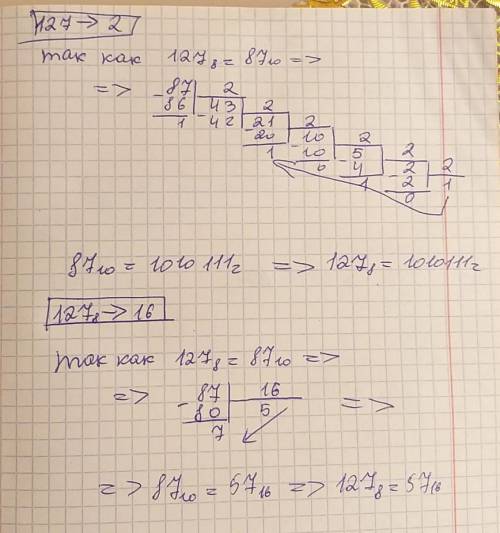 127 → 2
так как 127₈ = 87₁₀ =>
=> 87 2
86 43 2
1 42 21 2
20 10 2
1 10 5 2
0 4 2 2
1 2 1
0
87₁₀ = 1010111₂ => 127₈ = 1010111₂
127₈ → 16
так как 127₈ = 87₁₀ =>
=> 87 16
80 5 =>
7
=> 87₁₀ = 57₁₆ => 127₈ = 57₁₆